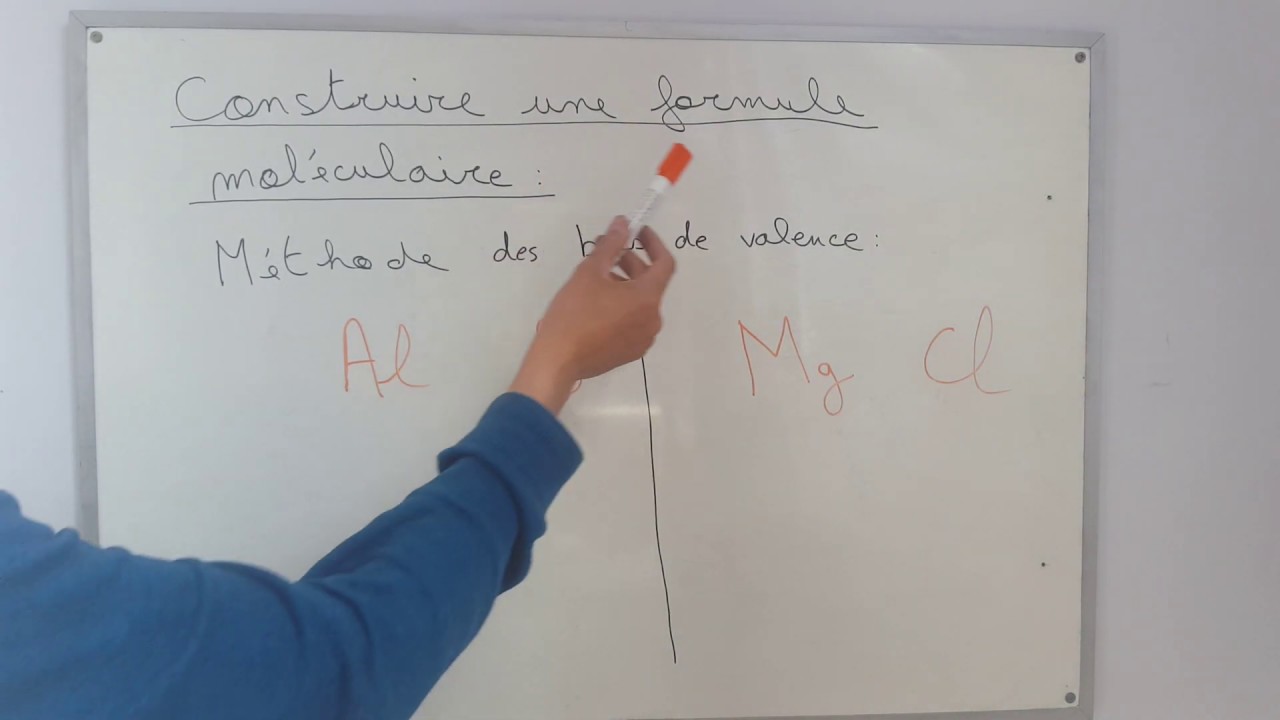 Construire une formule
moléculaire :
Méthode des de valence :
Al Mg Cl